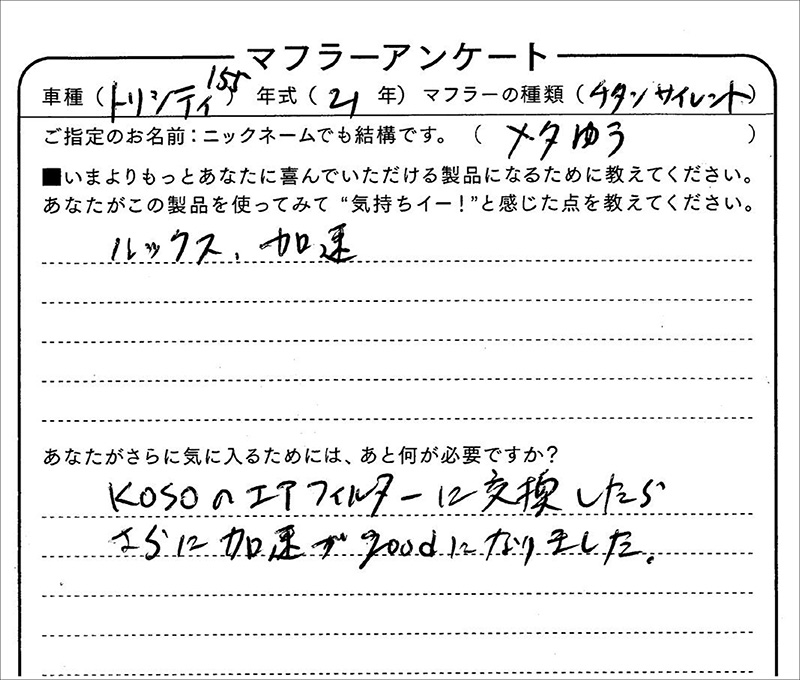 マフラーアンケート
車種(トリシティ155) 年式(21年) マフラーの種類(チタンサイレント)
ご指定のお名前:ニックネームでも結構です。(メタゆう)
■いまよりもっとあなたに喜んでいただける製品になるために教えてください。
あなたがこの製品を使ってみて“気持ちイー!”と感じた点を教えてください。
ルックス、加速
あなたがさらに気に入るためには、あと何が必要ですか?
KOSOのエアフィルターに交換したら
さらに加速がgoodになりました。